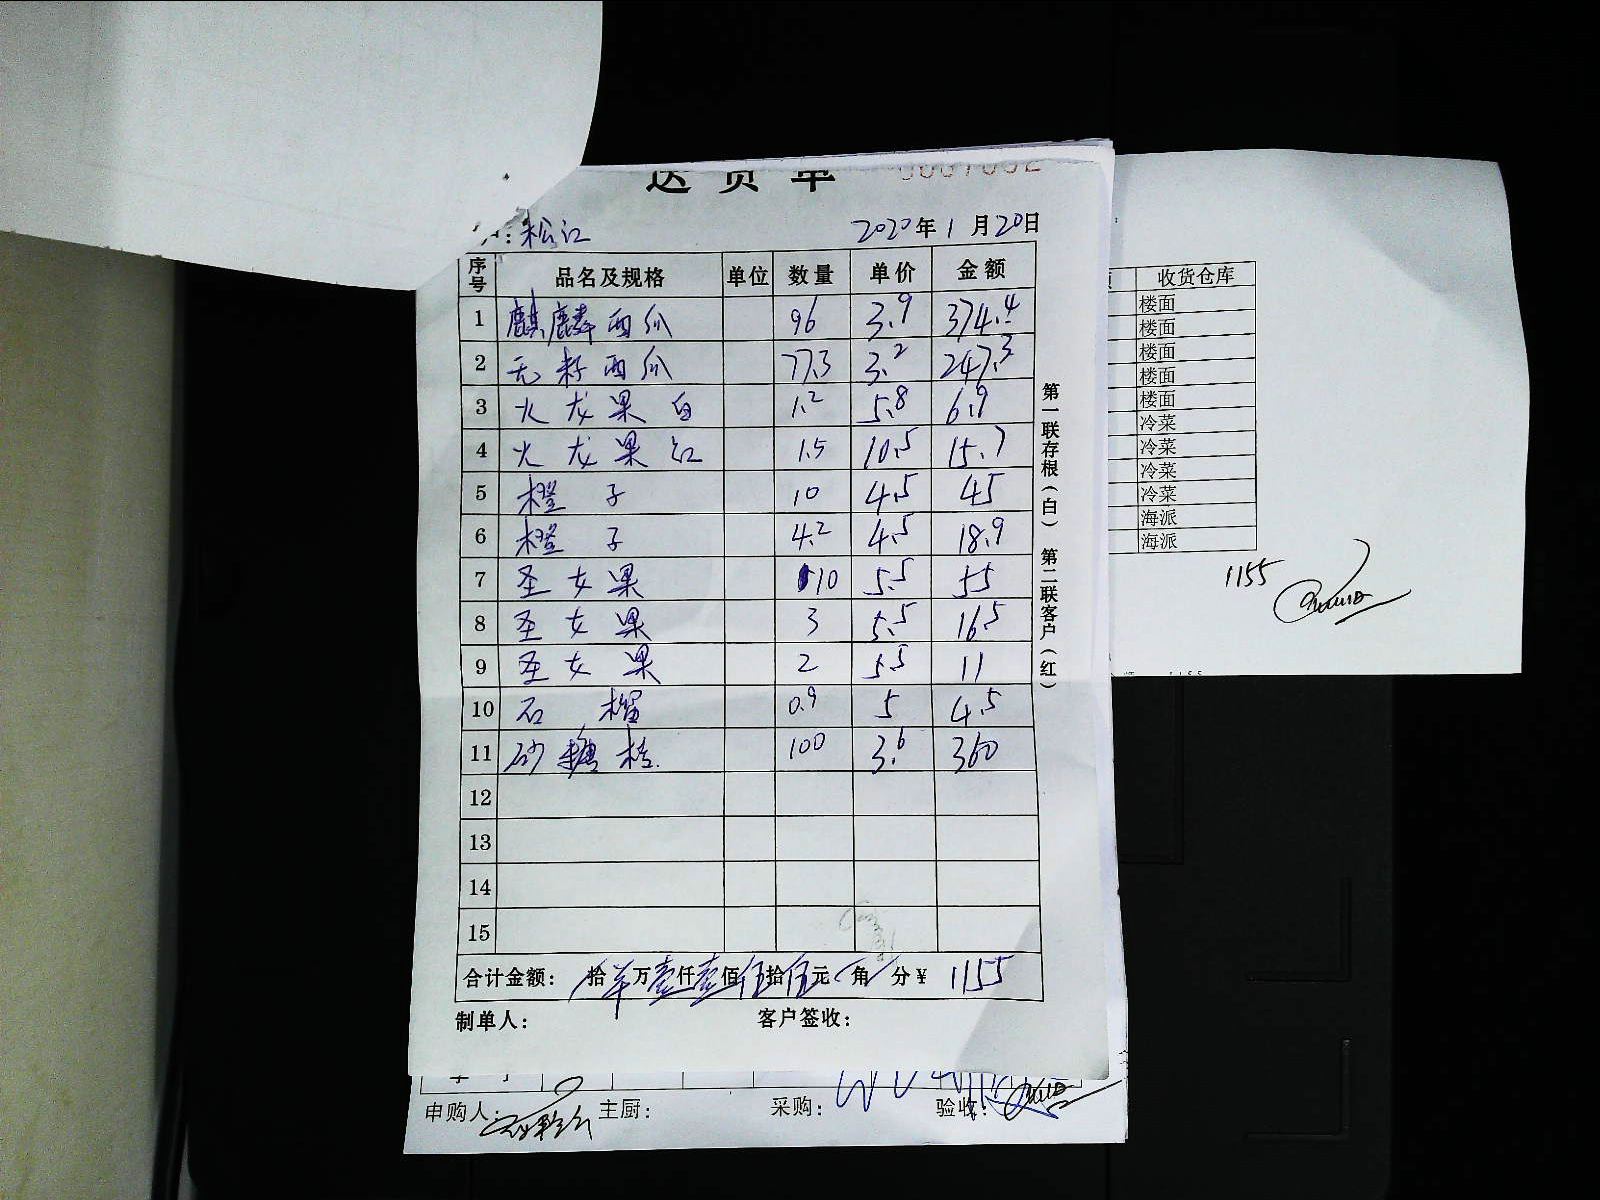 送货单 0037052
户：松江 2020年1月20日
序号 品名及规格 单位 数量 单价 金额
1 麒麟西瓜 96 3.9 374.4
2 无籽西瓜 77.3 3.2 247.3
3 火龙果白 1.2 5.8 6.9
4 火龙果红 1.5 10.5 15.7
5 橙子 10 4.5 45
6 橙子 4.2 4.5 18.9
7 圣女果 10 5.5 55
8 圣女果 3 5.5 16.5
9 圣女果 2 5.5 11
10 石榴 0.9 5 4.5
11 砂糖桔 100 3.6 360
12
13
14
15
合计金额： 拾 万壹仟壹佰伍拾伍元 角 分￥ 1155
制单人： 客户签收：
第一联存根（白） 第二联客户（红）
申购人： 主厨： 采购： 验收：
收货仓库
楼面
楼面
楼面
楼面
楼面
冷菜
冷菜
冷菜
冷菜
海派
海派
1155
1155